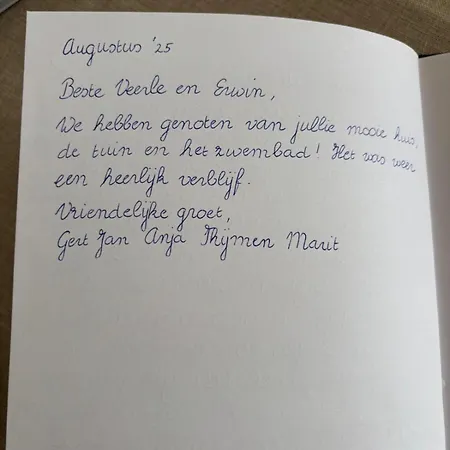 Augustus '25
Beste Veerle en Erwin,
We hebben genoten van jullie mooie huis,
de tuin en het zwembad! Het was weer
een heerlijk verblijf.
Vriendelijke groet,
Gert Jan Anja Thijmen Marit